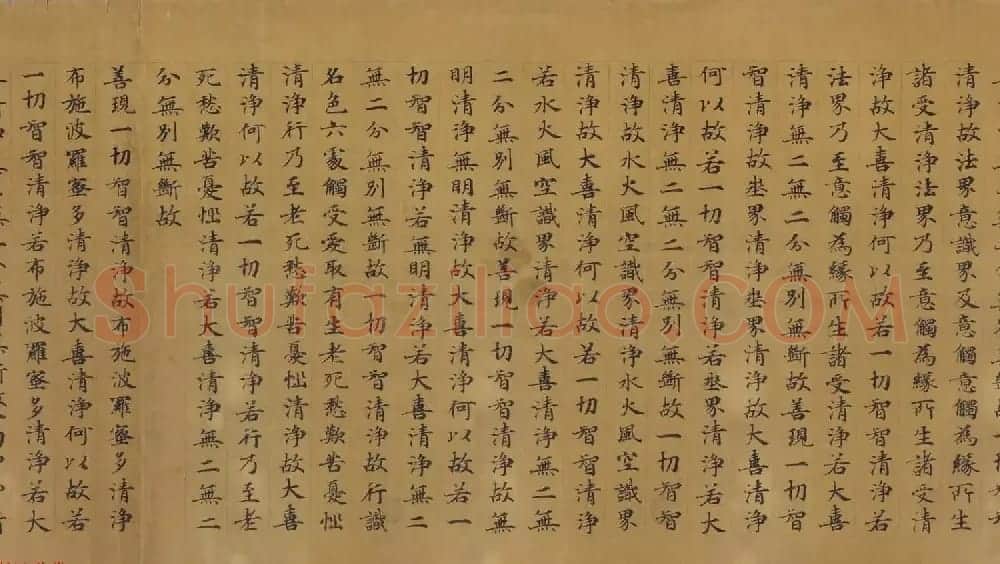 清淨故法界意識界及意觸意觸為緣所生
諸受清淨法界乃至意觸為緣所生諸受清
淨故大喜清淨何以故若一切智智清淨若
法界乃至意觸為緣所生諸受清淨若大喜
清淨無二無二分無別無斷故善現一切智
智清淨故地界清淨地界清淨故大喜清淨
何以故若一切智智清淨若地界清淨若大
喜清淨無二無二分無別無斷故一切智智
清淨故水火風空識界清淨水火風空識界
清淨故大喜清淨何以故若一切智智清淨
若水火風空識界清淨若大喜清淨無二無
二分無別無斷故善現一切智智清淨故無
明清淨無明清淨故大喜清淨何以故若一
切智智清淨若無明清淨若大喜清淨無二
無二分無別無斷故一切智智清淨故行識
名色六處觸受愛取有生老死愁歎苦憂惱
清淨行乃至老死愁歎苦憂惱清淨故大喜
清淨何以故若一切智智清淨若行乃至老
死愁歎苦憂惱清淨若大喜清淨無二無二
分無別無斷故
善現一切智智清淨故布施波羅蜜多清淨
布施波羅蜜多清淨故大喜清淨何以故若
一切智智清淨若布施波羅蜜多清淨若大
Shufaziliao.COM